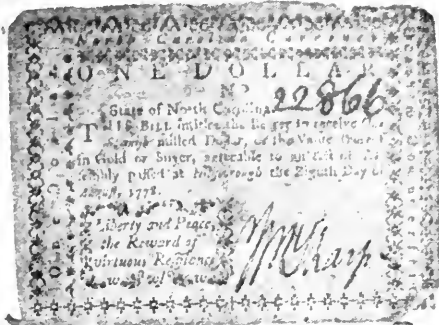 North Carolina Currency
ONE DOLLAR
No
State of North Carolina 22866
THIS BILL intitles the Bearer to receive One
Spanish milled Dollar, or the Value thereof
in Gold or Silver, agreeable to an Act of As-
sembly passed at Hillsborough the Eighth Day of
August, 1778.
Liberty and Peace,
the Reward of
virtuous Resistance
Wm Sharp